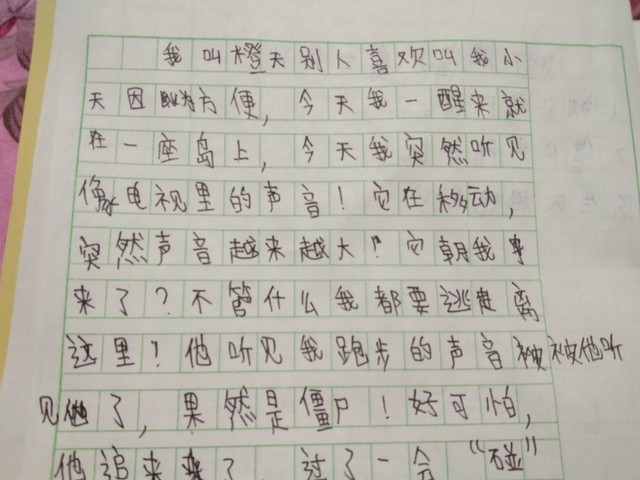 我叫橙天别人喜欢叫我小
天因为方便，今天我一醒来就
在一座岛上，今天我突然听见
像电视里的声音！它在移动，
突然声音越来越大！它朝我
来了？不管什么我都要逃离
这里！他听见我跑步的声音被他听
见了，果然是僵尸！好可怕，
他追来了 过了一会“碰”